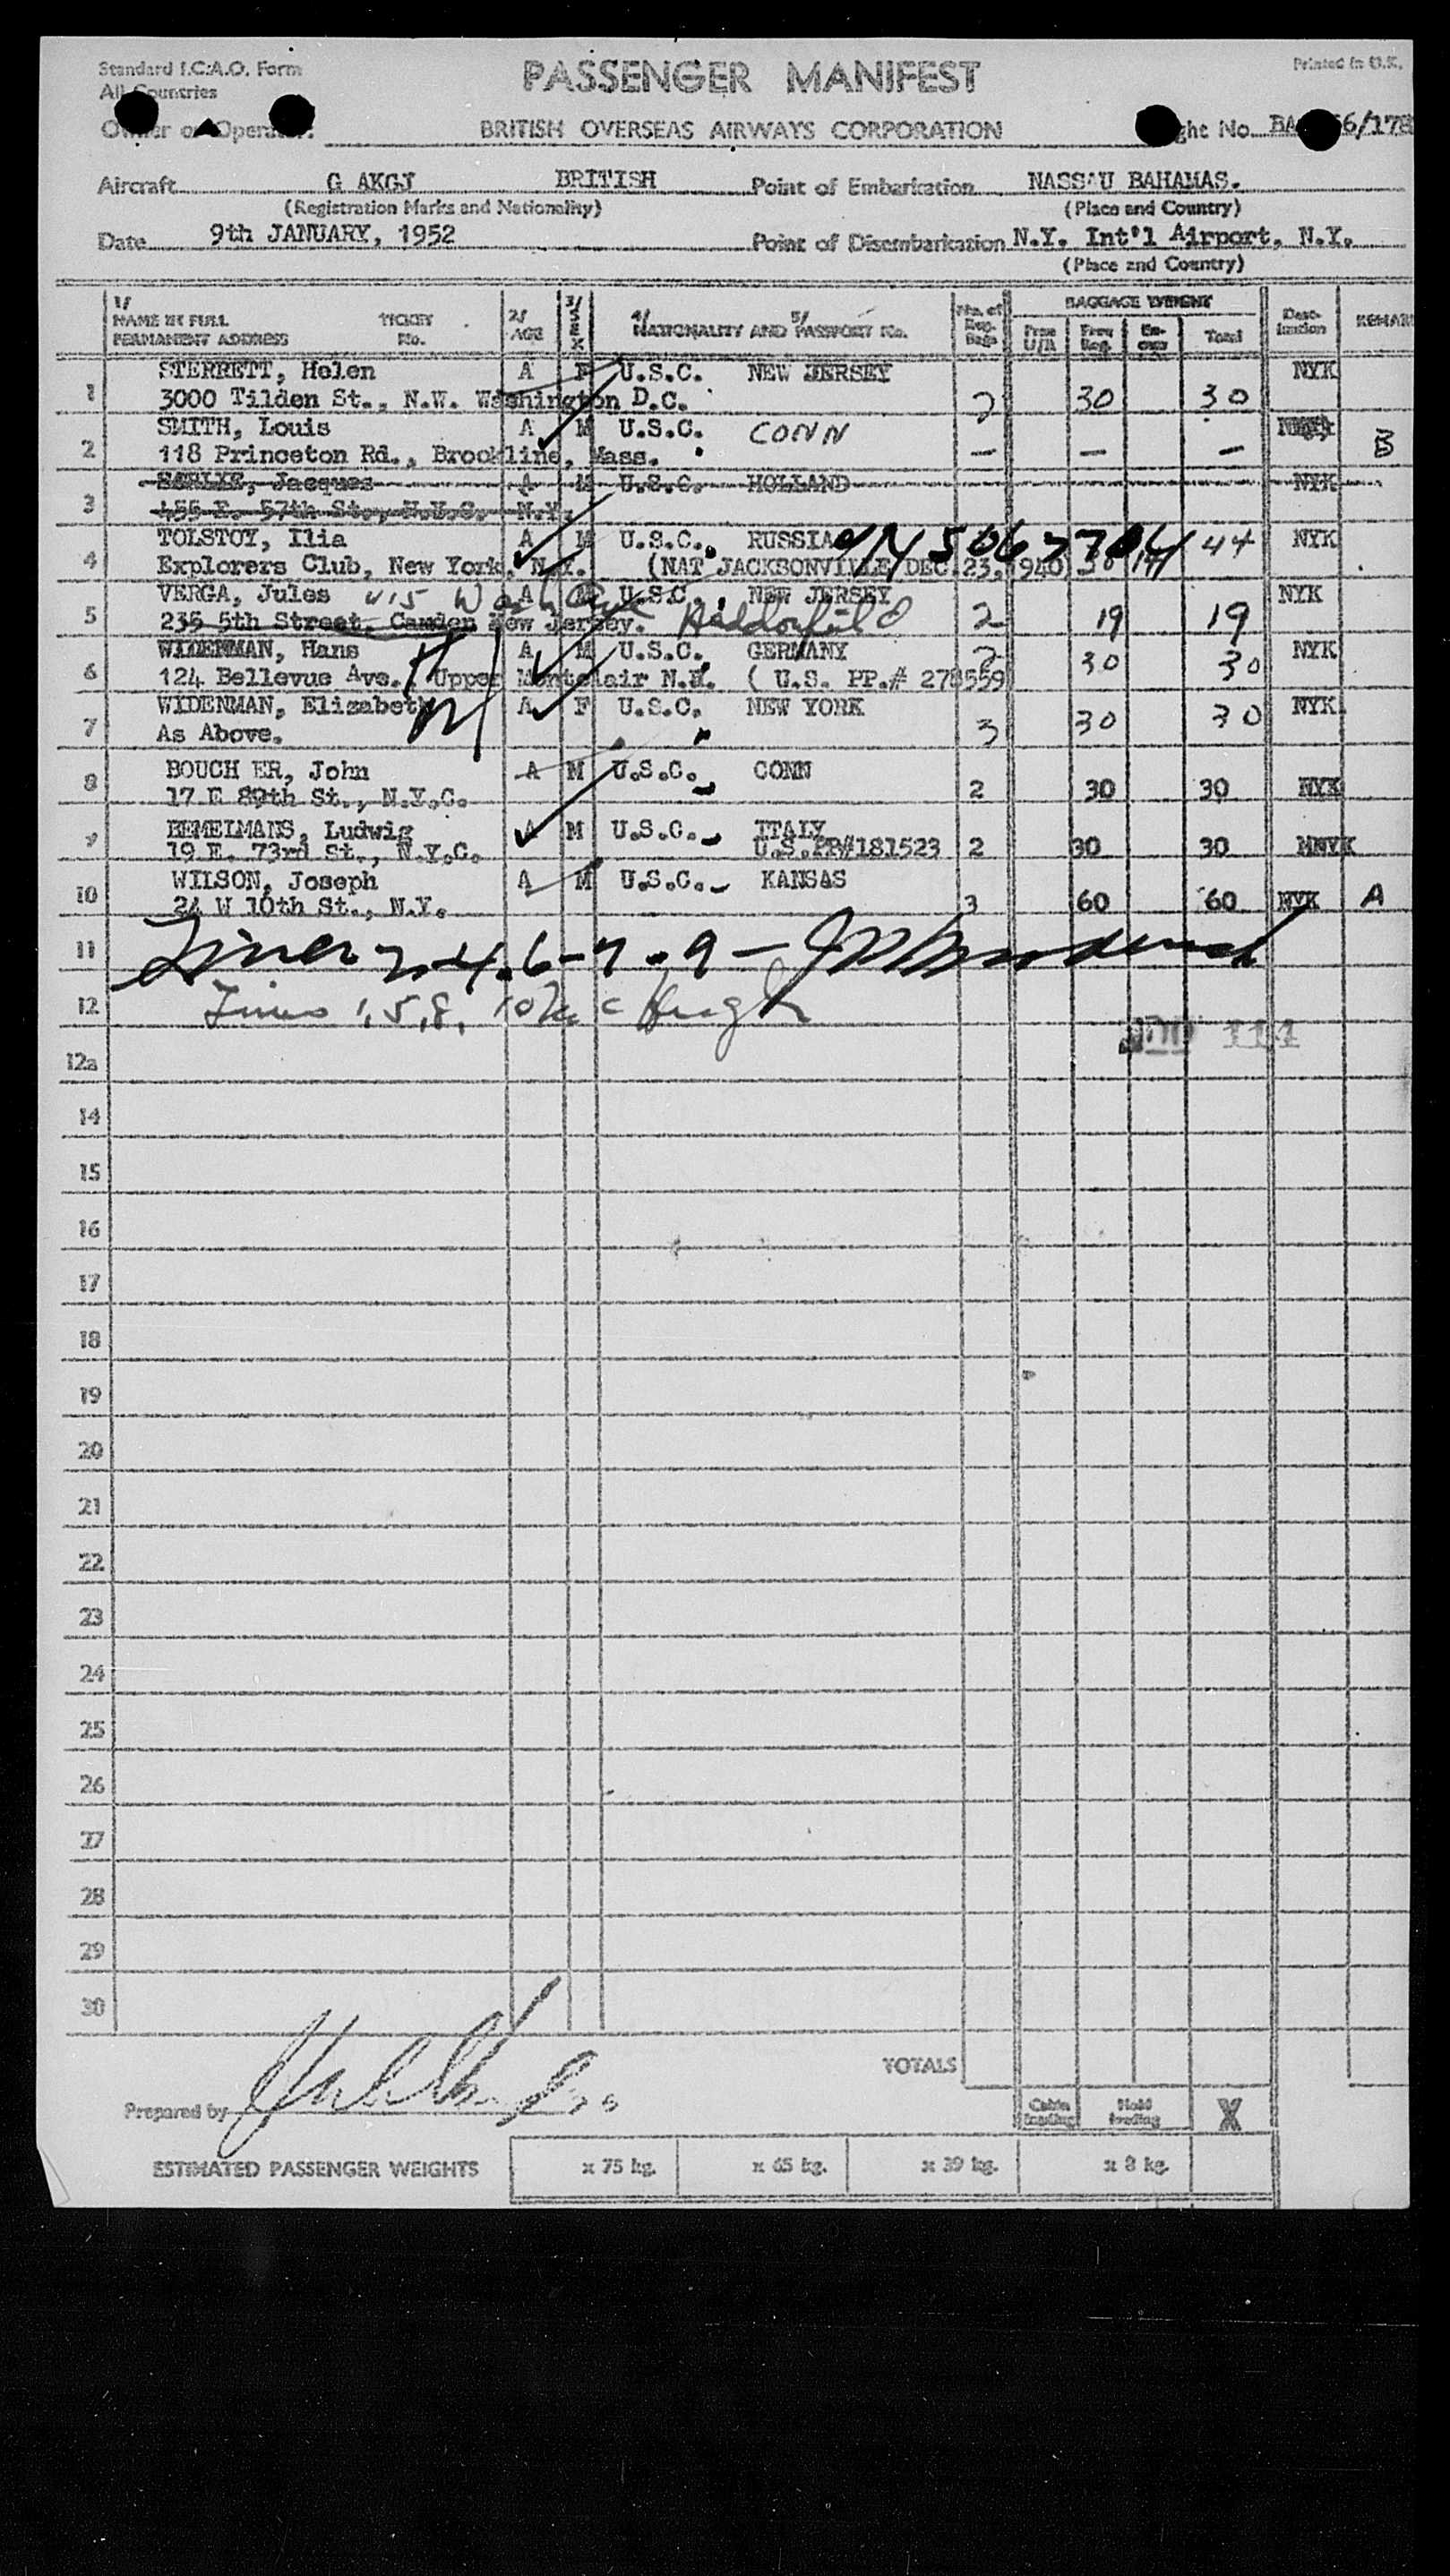 Standard I.C.A.O. Form
PASSENGER MANIFEST
Printed in U.K.
All Countries
Owner or Operator
BRITISH OVERSEAS AIRWAYS CORPORATION
ght No. BA 56/178
Aircraft G AKGJ BRITISH Point of Embarkation NASSAU BAHAMAS.
(Registration Marks and Nationality) (Place and Country)
Date 9th JANUARY, 1952 Point of Disembarkation N.Y. Int'l Airport, N.Y.
(Place and Country)
1/ NAME IN FULL TICKET 2/ AGE 3/ SEX 4/ NATIONALITY AND 5/ PASSPORT No. No. of Reg. Bags BAGGAGE WEIGHT Dest- ination REMAR
PERMANENT ADDRESS No. Free U/A Free Reg. Ex- cess Total
STERRETT, Helen A F U.S.C. NEW JERSEY NYK
1 3000 Tilden St., N.W. Washington D.C. 2 30 30
SMITH, Louis A M U.S.C. CONN
2 118 Princeton Rd., Brookline, Mass. — — — B
Jacques A M U.S.C. HOLLAND NYK
3 455 E. 57th St., N.Y.C. N.Y.
TOLSTOY, Ilia A M U.S.C. RUSSIA 44 NYK
4 Explorers Club, New York, N.Y. (NAT JACKSONVILLE DEC.23, 1940)
VERGA, Jules 415 Wash Ave A M U.S.C. NEW JERSEY NYK
5 235 5th Street, Camden New Jersey. Haddonfield 2 19 19
WIDENMAN, Hans A M U.S.C. GERMANY 2 30 30 NYK
6 124 Bellevue Ave. Upper Montclair N.J. ( U.S. PP.# 278559
WIDENMAN, Elizabeth A F U.S.C. NEW YORK NYK
7 As Above. 3 30 30
BOUCH ER, John A M U.S.C. CONN
8 17 E 89th St., N.Y.C. 2 30 30 NYK
BEMELMANS, Ludwig A M U.S.C. ITALY
9 19 E. 73rd St., N.Y.C. U.S.PP#181523 2 30 30 MNYK
WILSON, Joseph A M U.S.C. KANSAS
10 24 W 10th St., N.Y. 3 60 60 NYK A
11 Lines 2-4-6-7-9-
12 Lines 1,5,8, 10
114
12a
14
15
16
17
18
19
20
21
22
23
24
25
26
27
28
29
30
TOTALS
Prepared by
Cabin loading Hold loading X
ESTIMATED PASSENGER WEIGHTS x 75 kg. x 65 kg. x 39 kg. x 8 kg.